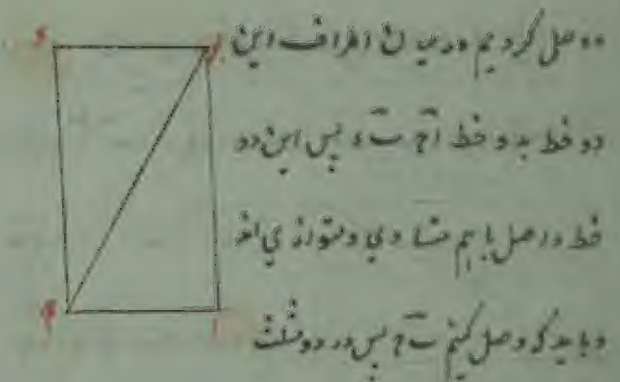 ء ب
و وصل کردیم در میان اطراف این
دو خط بدو خط اَج بَء پس این دو
خط واصل با هم متساوی و متوازی اند
و باید که وصل کنیم بَج پس در دو مثلث
ج ا